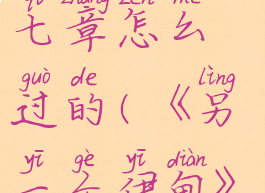 qī zhāng zěn me
七章怎么
guò de lìng
过的(《另
yī gè yī diàn
一个伊甸》